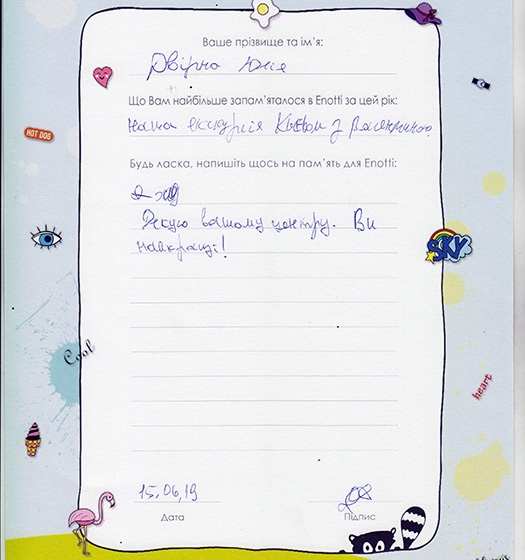 Ваше прізвище та ім'я:
Двірна Юлія
Що Вам найбільше запам'яталося в Enotti за цей рік:
Наша екскурсія Києвом з Валентиною
Будь ласка, напишіть щось на пам'ять для Enotti:
Дякую вашому центру. Ви
найкращі!
HOT DOG
SKY
Cool
heart
15.06.19
Дата
Підпис